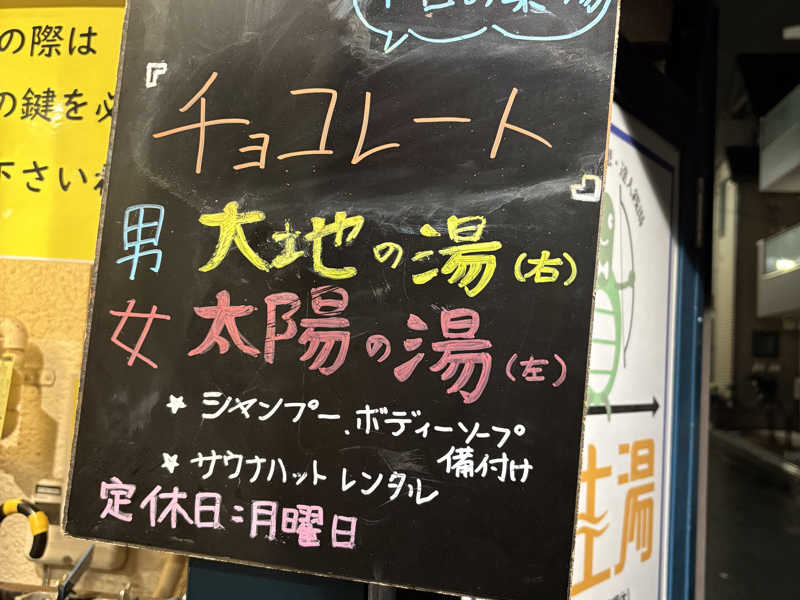 の際は
の鍵を必
下さい
『チョコレート』
男 大地の湯(右)
女 太陽の湯(左)
★ シャンプー、ボディーソープ
備付け
★ サウナハット レンタル
定休日:月曜日
湯